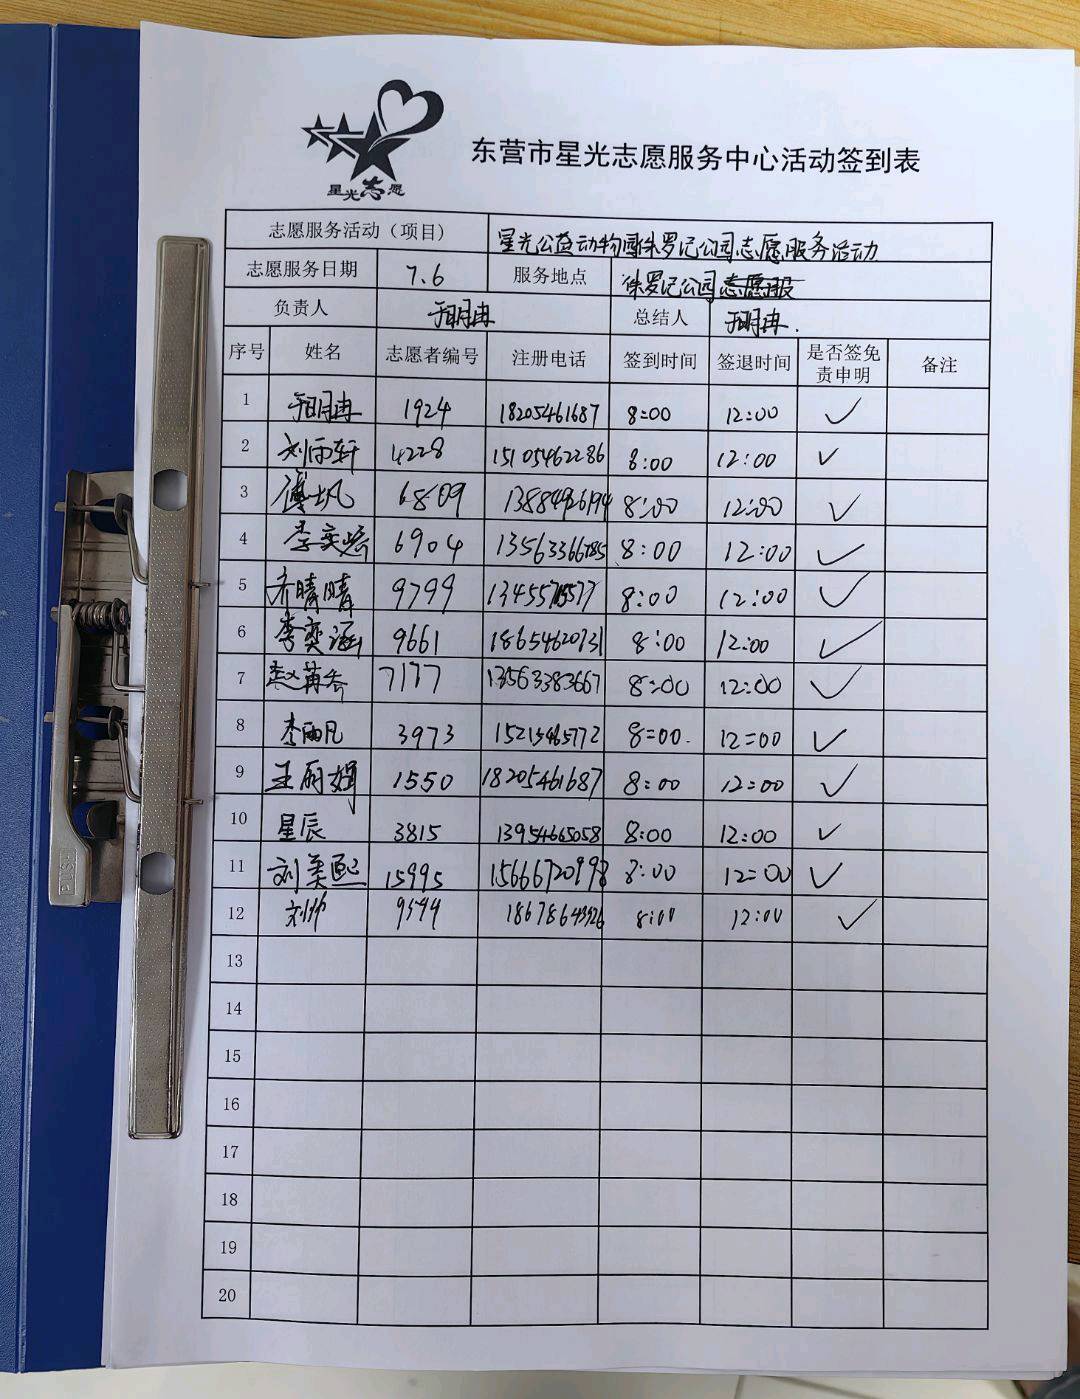 星光志愿
东营市星光志愿服务中心活动签到表
志愿服务活动（项目） 星光公益动物园侏罗记公园志愿服务活动
志愿服务日期 7.6 服务地点 侏罗记公园
负责人 于明冉 总结人 于明冉.
序号 姓名 志愿者编号 注册电话 签到时间 签退时间 是否签免责申明 备注
1 于明冉 1924 18205461687 8:00 12:00 ✓
2 刘雨轩 4228 15105462286 8:00 12:00 ✓
3 6809 13884926194 8:00 12:00 ✓
4 李奕娇 6904 13563366785 8:00 12:00 ✓
5 齐晴晴 9799 8:00 12:00 ✓
6 李奕涵 9661 18654620731 8:00 12:00 ✓
7 7177 13563383667 8:00 12:00 ✓
8 李雨凡 3973 15215465772 8=00. 12=00 ✓
9 王丽娟 1550 18205461687 8:00 12:00 ✓
10 星辰 3815 13954665058 8:00 12:00 ✓
11 刘美熙 15995 15666720998 8:00 12=00 ✓
12 刘帅 9594 8:00 12:00 ✓
13
14
15
16
17
18
19
20